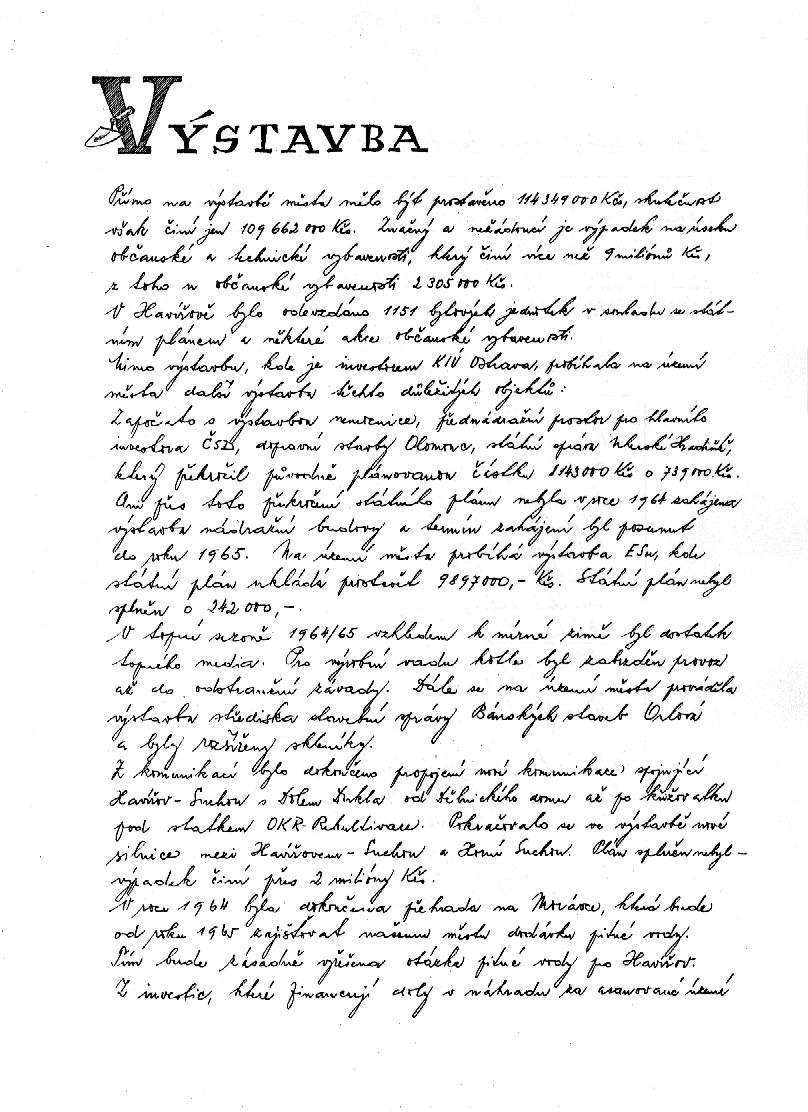 VÝSTAVBA
Přímo na výstavbě města mělo být prostavěno 114 349 000 Kčs, skutečnost
však činí jen 109 662 000 Kčs. Značný a nežádoucí je výpadek na úseku
občanské a technické vybavenosti, který činí více než 9 miliónů Kčs,
z toho u občanské vybavenosti 2 305 000 Kčs.
V Havířově bylo odevzdáno 1151 bytových jednotek v souhlasu se stát-
ním plánem a některé akce občanské vybavenosti.
Mimo výstavbu, kde je investorem KIÚ Ostrava, probíhala na území
města další výstavba těchto důležitých objektů:
Započato s výstavbou nemocnice, přednádražní prostor pro hlavního
investora ČSD, dopravní stavby Olomouc, státní správa Uherské Hradiště,
který překročil původně plánovanou částku 8143000 Kčs o 739000 Kčs.
Ani přes toto překročení státního plánu nebyla v roce 1964 zahájena
výstavba nádražní budovy a termín zahájení byl posunut
do roku 1965. Na území města probíhá výstavba ESu, kde
státní plán ukládá prostavět 9897000,- Kčs. Státní plán nebyl
splněn o 242 000,-.
V topné sezoně 1964/65 vzhledem k mírné zimě byl dostatek
topného media. Pro výrobní vadu kotle byl zabrzděn provoz
až do odstranění závady. Dále se na území města prováděla
výstavba střediska stavební správy Báňských staveb Orlová
a byly rozšířeny skleníky.
Z komunikací bylo dokončeno propojení nové komunikace spojující
Havířov-Suchou s Dolem Dukla od Dělnického domu až po křižovatku
pod statkem OKR-Rekultivace. Pokračovalo se ve výstavbě nové
silnice mezi Havířovem-Suchou a Horní Suchou. Plán splněn nebyl -
výpadek činí přes 2 milióny Kčs.
V roce 1964 byla dokončena přehrada na Morávce, která bude
od roku 1965 zajišťovat našemu městu dodávku pitné vody.
Tím bude zásadně vyřešena otázka pitné vody pro Havířov.
Z investic, které financují doly v náhradu za asanované území